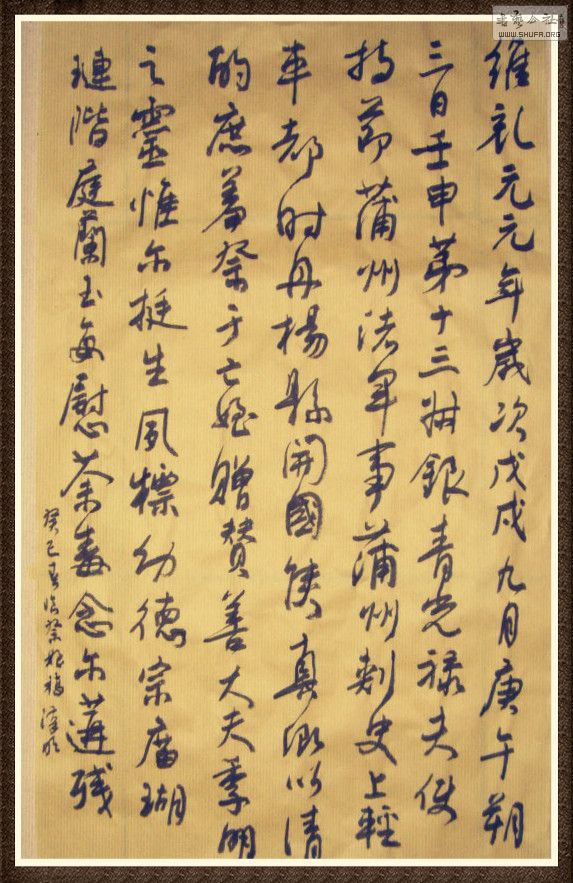 維乾元元年歲次戊戌九月庚午朔
三日壬申第十三叔銀青光祿夫使
持節蒲州諸軍事蒲州刺史上輕
車都尉丹楊縣開國侯真卿以清
酌庶羞祭于亡姪贈贊善大夫季明
之靈惟爾挺生夙標幼德宗廟瑚
璉階庭蘭玉每慰荼毒念爾遘殘
癸巳春臨祭姪稿
書藝公社
WWW.SHUFA.ORG